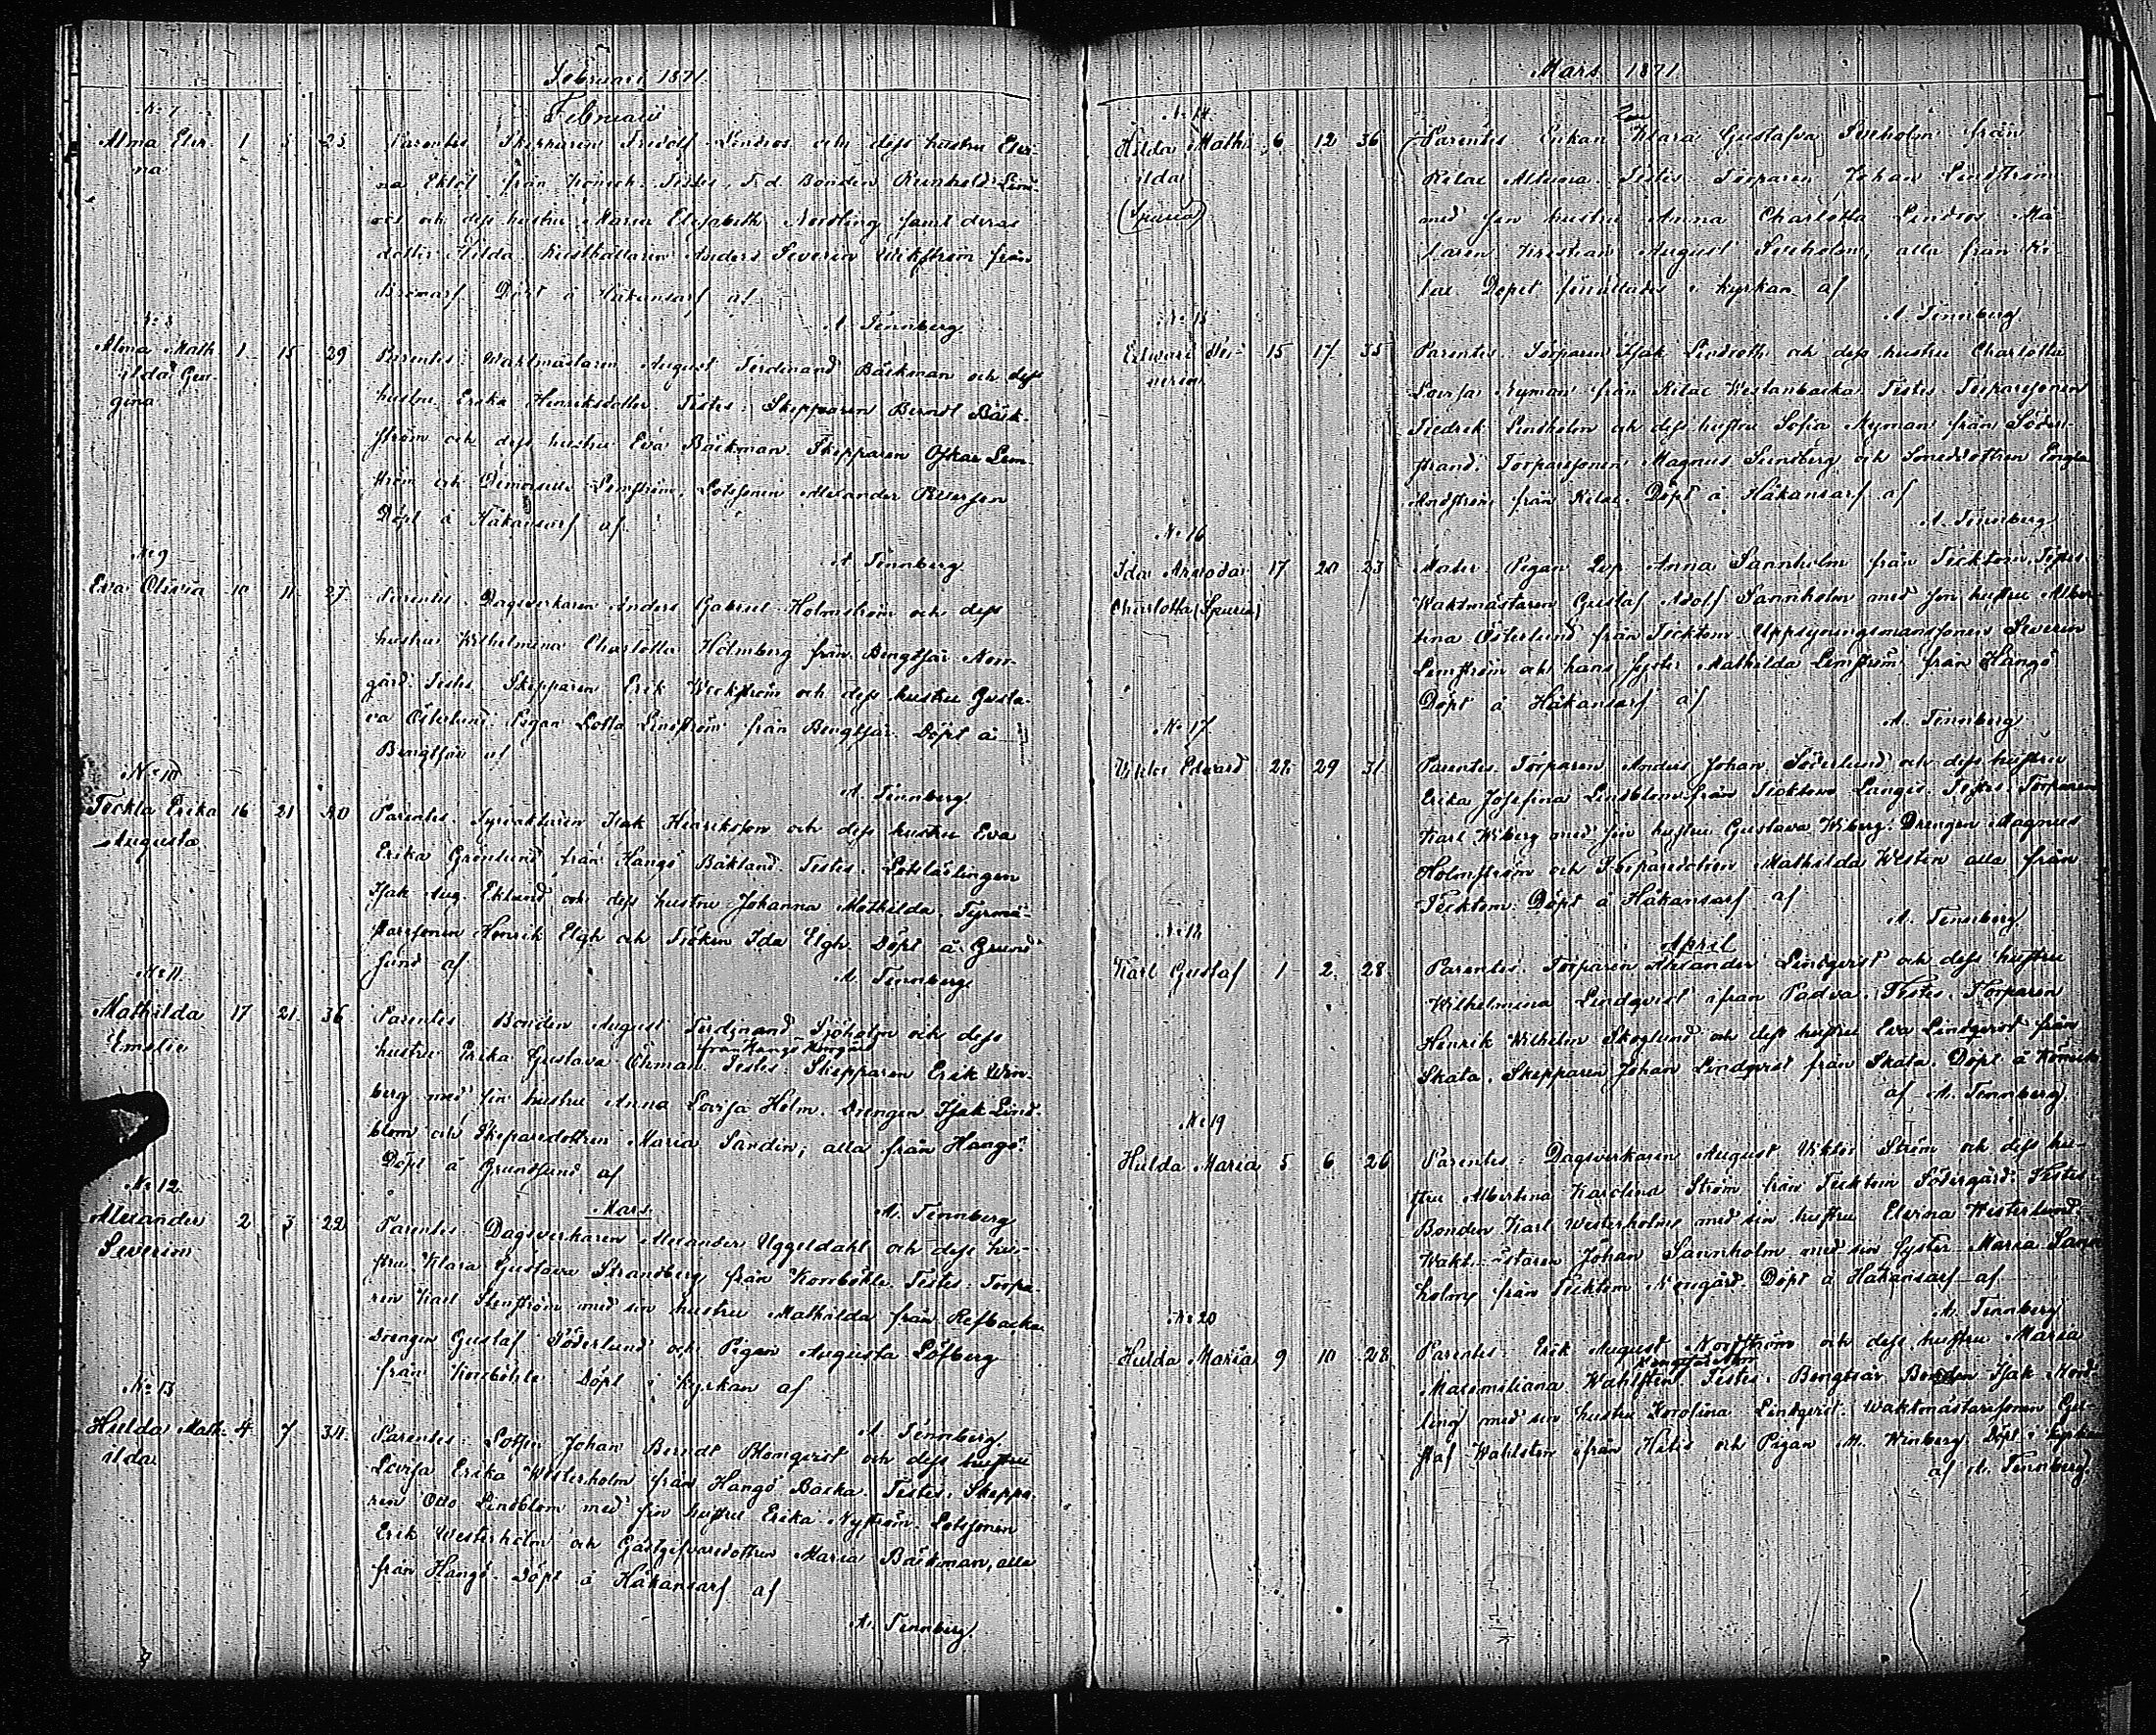 Februari 1871
Februari
No 7
Alma Elvi- 1 5 25 Parentes Skepparen Fridolf Lindros och dess hustru Elvi-
na
na Eklöf från Testes, F.d. Bonden Reinhold Lind-
ros och dess hustru Maria Elisabeth Nordling samt deras
dotter Hilda. Anders Severin Wikström från
Bromarf. Döpt å Håkansarf af
A. Tennberg
No 8
Alma Math 1 15 29 Parentes. Waktmästaren August Ferdinand Bäckman och dess
ilda Geor-
gina
hustru Erika Henriksdotter. Testes: Skepparen Berndt Bäck-
ström och dess hustru Eva Bäckman. Skepparen Oskar Lem-
ström och Demoiselle Lemström, Lotssonen Alexander Petersson
Döpt å Håkansarf af
A Tennberg
No 9
Eva Olivia 10 11 27 Parentes. Dagsverkaren Anders Gabriel Holmström och dess
hustru Wilhelmina Charlotta Holmberg från Bengtsår Norr-
gård. Testes. Skepparen Erik Weckström och dess hustru Gusta-
va Österlund. Pigan Lotta Lindström från Bengtsår. Döpt å
Bengtsår af
A. Tennberg
No 10
Teckla Erika 16 21 Parentes. Fyrvaktaren Isak Henriksson och dess hustru Eva
Augusta
Erika Grönlund från Hangö Bakland. Testes. Lotslärlingen
Isak Aug. Eklund och dess hustru Johanna Mathilda. Fyrmä-
staressonen Henrik Elgh och Fröken Ida Elgh. Döpt å Grund
sund af
A. Tennberg
No 11
Mathilda 17 21 36 Parentes. Bonden August Ferdinand Sjöholm och dess
Emelie
från Hangö Norrgård
hustru Erika Gustava Öhman. Testes: Skepparen Erik Win-
berg med sin hustru Anna Lovisa Holm. Drengen Isak Lind-
blom och Skeparedottren Maria Sandin, alla från Hangö.
Döpt å Grundsund af
Mars
A. Tennberg
No 12
Alexander 2 3 22 Parentes Dagsverkaren Alexander Uggeldahl och dess hu-
Severin
stru Klara Gustava Strandberg från Kornböhle. Testes: Torpa-
ren Karl Stenström med sin hustru Mathilda från Refbacka
Drengen Gustaf Söderlund och Pigan Augusta Löfberg
från Kornböhle Döpt i Kyrkan af
A. Tennberg
No 13
Hulda Math- 4 7 34 Parentes: Lotsen Johan Berndt Blomqvist och dess hustru
ilda
Lovisa Erika Westerholm från Hangö Backa. Testes. Skeppa-
ren Otto Lindblom med sin hustru Erika Nyström. Lotssonen
Erik Westerholm och Gästgifvaredottren Maria Bäckman, alla
från Hangö. Döpt å Håkansarf af
A. Tennberg
Mars 1871
No 14
Hilda Mathi 6 12 36 Parentes Enkan Klara Gustafva Siveholm från
ilda
(Spuria)
Kilae Testes. Torparen Johan Lindström
med sin hustru Anna Charlotta Lindros
Kristian August Siveholm, alla från Ki-
lae Dopet förrättades i kyrkan af
A Tennberg
No 15
Edward We- 15 17 35 Parentes. Torparen Isak Lindroth och dess hustru Charlotta
nerin
Lovisa Nyman från Kilae Westanbacka. Testes. Torparesonen
Fredrik Lindholm och dess hustru Sofia Nyman från Söder-
strand. Torparesonen Magnus Sundberg och Smeddottren Engla
Lindström från Kilae. Döpt å Håkansarf af
A. Tennberg
No 16
Ida Axelodar 17 20 23 Mater. Pigan Anna Sannholm från Ticktom. Testes
Charlotta (Spuria)
Waktmästaren Gustaf Adolf Sannholm med sin hustru Alber
tina Österlund från Ticktom. Uppsyningsmanssonen Severin
Lemström och hans syster Mathilda Lemström från Hangö
Döpt å Håkansarf af
A. Tennberg
No 17
Viktor Edvard 28 29 31 Parentes. Torparen Anders Johan Söderlund och dess hustru
Erika Josefina Lindblom från Ticktom Langis. Testes. Torparen
Karl Wiberg med sin hustru Gustava Wiberg. Drengen Magnus
Holmström och Torparedottren Mathilda Westen alla från
Ticktom. Döpt å Håkansarf af
A. Tennberg
April
No 18
Karl Gustaf 1 2 28 Parentes. Torparen Alexander Lindqvist och dess hustru
Wilhelmina Lindqvist ifrån Padva. Testes. Torparen
Henrik Wilhelm Skoglund och dess hustru Eva Lindqvist från
Skata. Skepparen Johan Lindqvist från Skata. Döpt å
af A. Tennberg
No 19
Hulda Maria 5 6 26 Parentes: Dagsverkaren August Viktor Ström och dess hu-
stru Albertina Karolina Ström från Ticktom Södergård. Testes.
Bonden Karl Westerholm med sin hustru Elvina Westerlund.
Waktmästaren Johan Sannholm med sin syster Maria Sann
holm från Ticktom Norrgård. Döpt å Håkansarf af
A. Tennberg
No 20
Hulda Maria 9 10 28 Parentes: Erik August Nordström och dess hustru Maria
Maximiliana Wahlsten Testes. Bengtsår Bonden Isak Nord
ling med sin hustru Karolina Lindqvist. Waktmästaresonen Gu-
staf Wahlsten ifrån Hitis och Pigan M. Winberg. Döpt i kyrkan
af A. Tennberg.